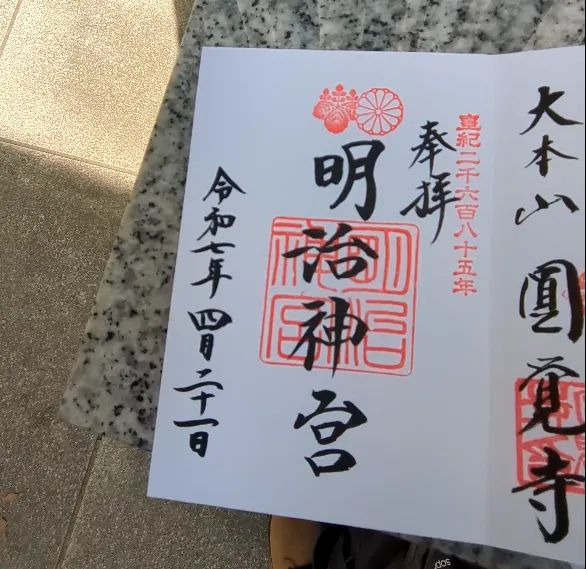 大本山
圓覚寺
皇紀二千六百八十五年
奉拝
明治神宮
明治神宮
令和七年四月二十一日